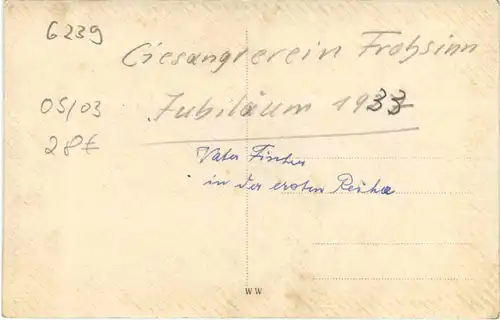 6239
Gesangverein Frohsinn
05/03
Jubiläum 1933
28€
Vater Fischer
in der ersten Reihe
WW